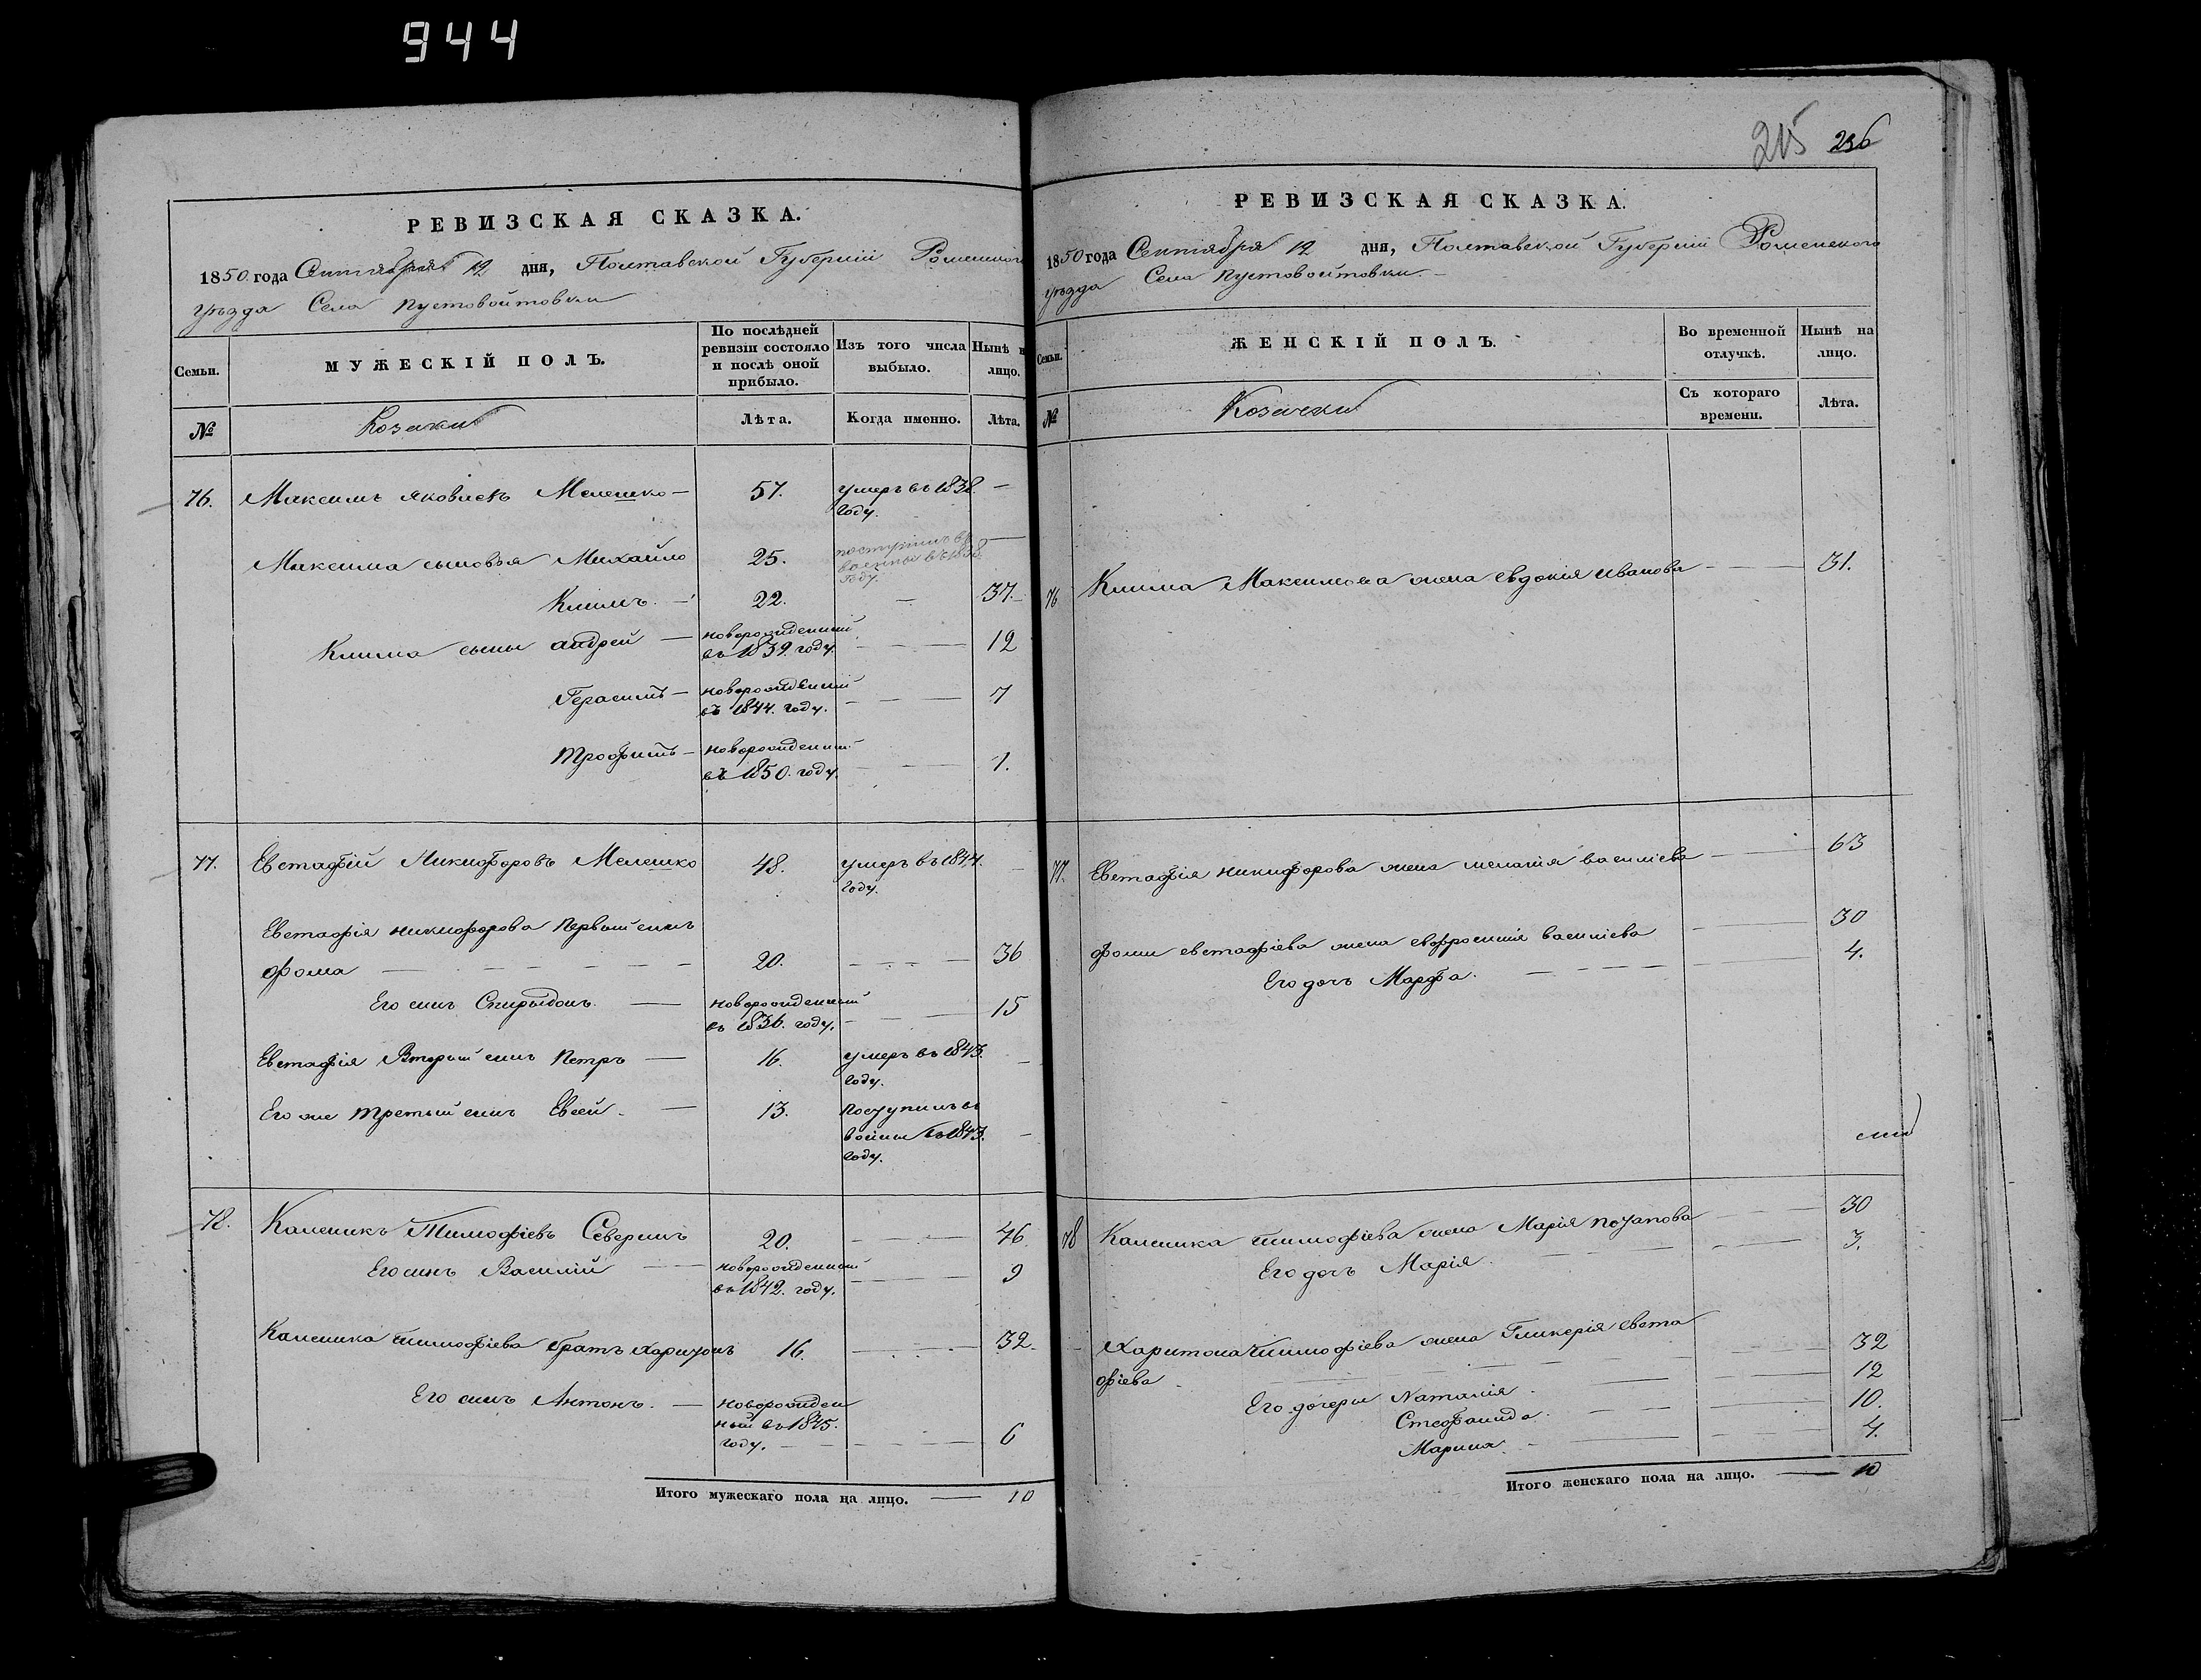 944
215 236
РЕВИЗСКАЯ СКАЗКА.
1850 года Сентября 12 дня, Полтавской Губерніи Роменского
уѣзда Села Пустовойтовки
Семьи.
МУЖЕСКІЙ ПОЛЪ.
По послѣдней ревизіи состояло и послѣ оной прибыло.
Изъ того числа выбыло.
Нынѣ н лицо.
№
Козаки
Лѣта.
Когда именно.
Лѣта.
76. Максимъ Яковлевъ Мелешко — 57. умеръ въ 1838. —
году.
Максима сыновья Михайло 25. поступилъ въ —
военны въ 1838.
году.
Климъ. — 22. — 37.
Клима сыны Андрей — новорожденный
въ 1839. году. — — 12
Герасимъ — новорожденный
въ 1844. году. — — 7
Трофимъ — новорожденный
въ 1850. году. — — 1.
77. Евстафій Никифоровъ Мелешко 48. умеръ въ 1844. —
году.
Евстафія Никифорова первый сынъ
Фома — — — 20. — — — 36
Его сынъ Спиридонъ. — новорожденный
въ 1836. году. — — 15
Евстафія Вторый сынъ Петръ — 16. умеръ въ 1843. —
году.
Его же третый сынъ Евсей. — 13. Поступилъ въ
воины въ 1843. —
году.
78. Каленикъ Тимофіевъ Северинъ 20. — — — 46
Его сынъ Василій — новорожденный
въ 1842. году. — 9
Каленика Тимофіева братъ Харитонъ 16. — — — 32.
Его сынъ Антонъ. — новорожден
ный въ 1845.
году. — — — 6
Итого мужескаго пола на лицо. — 10
РЕВИЗСКАЯ СКАЗКА.
1850 года Сентября 12 дня, Полтавской Губерніи Роменского
уѣзда Села Пустовойтовки. —
Семьи.
ЖЕНСКІЙ ПОЛЪ.
Во временной отлучкѣ.
Нынѣ на лицо.
№
Козачки
Съ котораго времени.
Лѣта.
76 Клима Максимова жена Евдокія Иванова — — 31.
77. Евстафія Никифорова жена Меланія Василіева — 63
Фомы Евстафіева жена Евфросинія Василіева — — 30
Его дочь Марфа. — — — 4.
78 Каленика Тимофіева жена Марія Потапова — — 30
Его дочь Марія. — — — 3.
Харитона Тимофіева жена Гликерія Евста
фіева. — — — 32
Его дочери Наталія. — — — 12
Стефанида. — — — 10.
Марина. — — — 4.
Итого женскаго пола на лицо. — 10